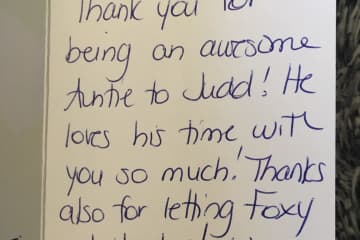 Thank you for
being an awesome
Auntie to Judd! He
loves his time with
you so much! Thanks
also for letting Foxy